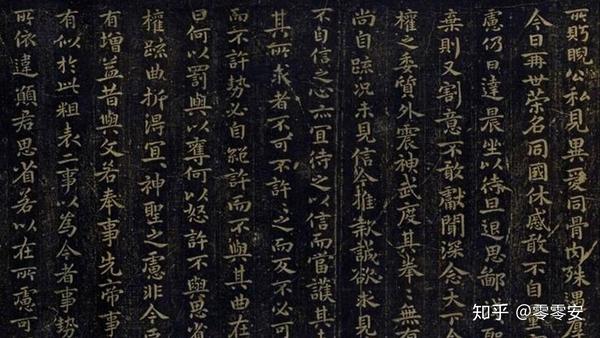 所盱睨公私見異愛同骨肉殊遇厚
今日再世榮名同國休慼敢不自量
慮仍日達晨坐以待旦退思鄙淺聖
棄則又割意不敢獻聞深念天下今
權之委質外震神武度其拳〻無有
尚自疏況未見信今推款誠欲求見
不自信之心亦宜待之以信而當護其
其所求者不可不許〻之而反不必可
而不許勢必自絕許而不與其曲在
曰何以罰與以奪何以怒許不與思省
權疏曲折得宜〻神聖之慮非今臣
有增益昔與文若奉事先帝事
有似於此粗表二事以為今者事勢
所依違願君思省若以在所慮可
知乎 @零零安